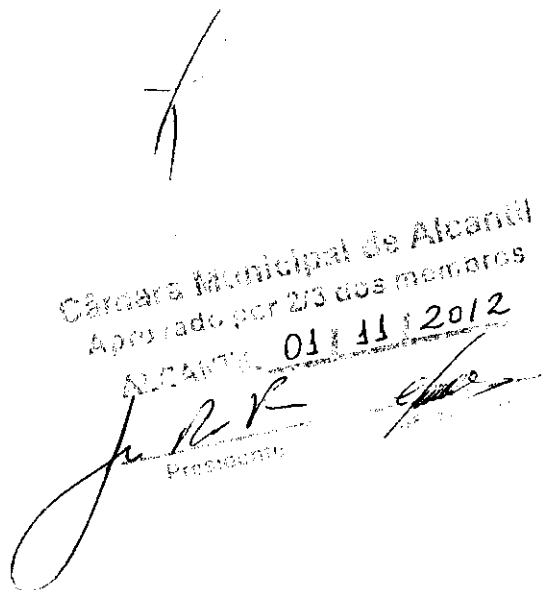 Câmara Municipal de Alcantil
Aprovado por 2/3 dos membros
ALCANTIL, 01 | 11 | 2012
Presidente